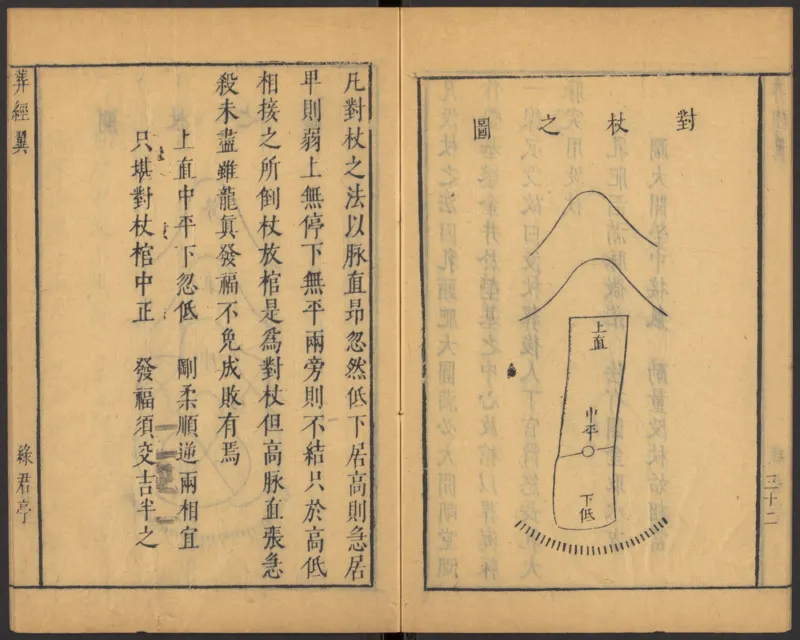 對杖之圖
上直
中平
下低
三十二
凡對杖之法以脉直昻忽然低下居高則急居
卑則弱上無停下無平兩旁則不結只於高低
相接之所倒杖放棺是爲對杖但高脉直張急
殺未盡雖龍眞發福不免成敗有焉
上直中平下忽低　剛柔順逆兩相宜
只堪對杖棺中正　發福須交吉半之
葬經翼
綠君亭